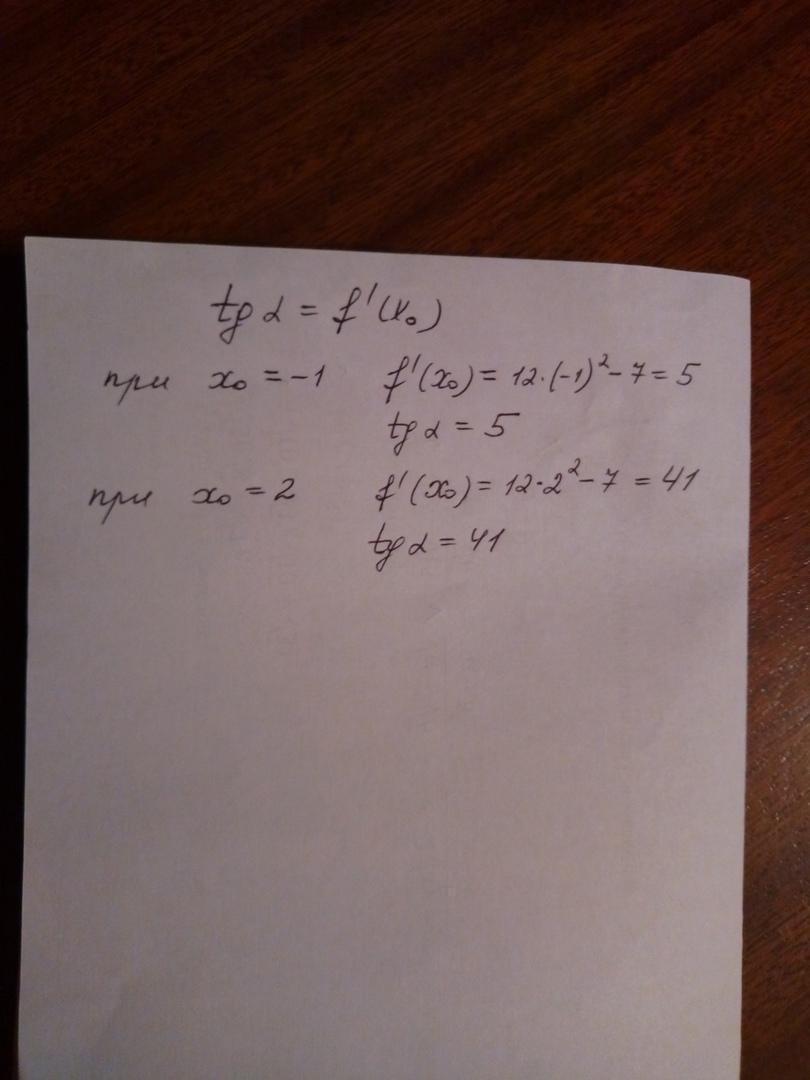 tg α = f'(x₀)
при x₀ = -1 f'(x₀) = 12·(-1)² - 7 = 5
tg α = 5
при x₀ = 2 f'(x₀) = 12·2² - 7 = 41
tg α = 41